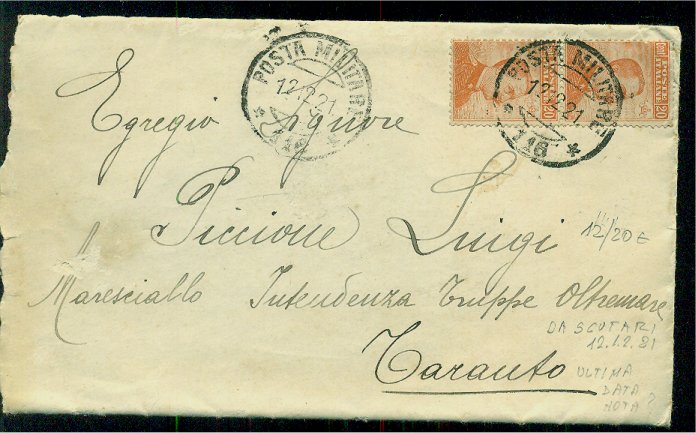 POSTA MILITARE
12.2.21
* 116 *
POSTA MILITARE
12.2.21
* 116 *
POSTE ITALIANE
20
Egregio Signore
Piccione Luigi
12/20 €
Maresciallo Intendenza Truppe Oltremare
DA SCUTARI
Taranto
ULTIMA
DATA
NOTA?